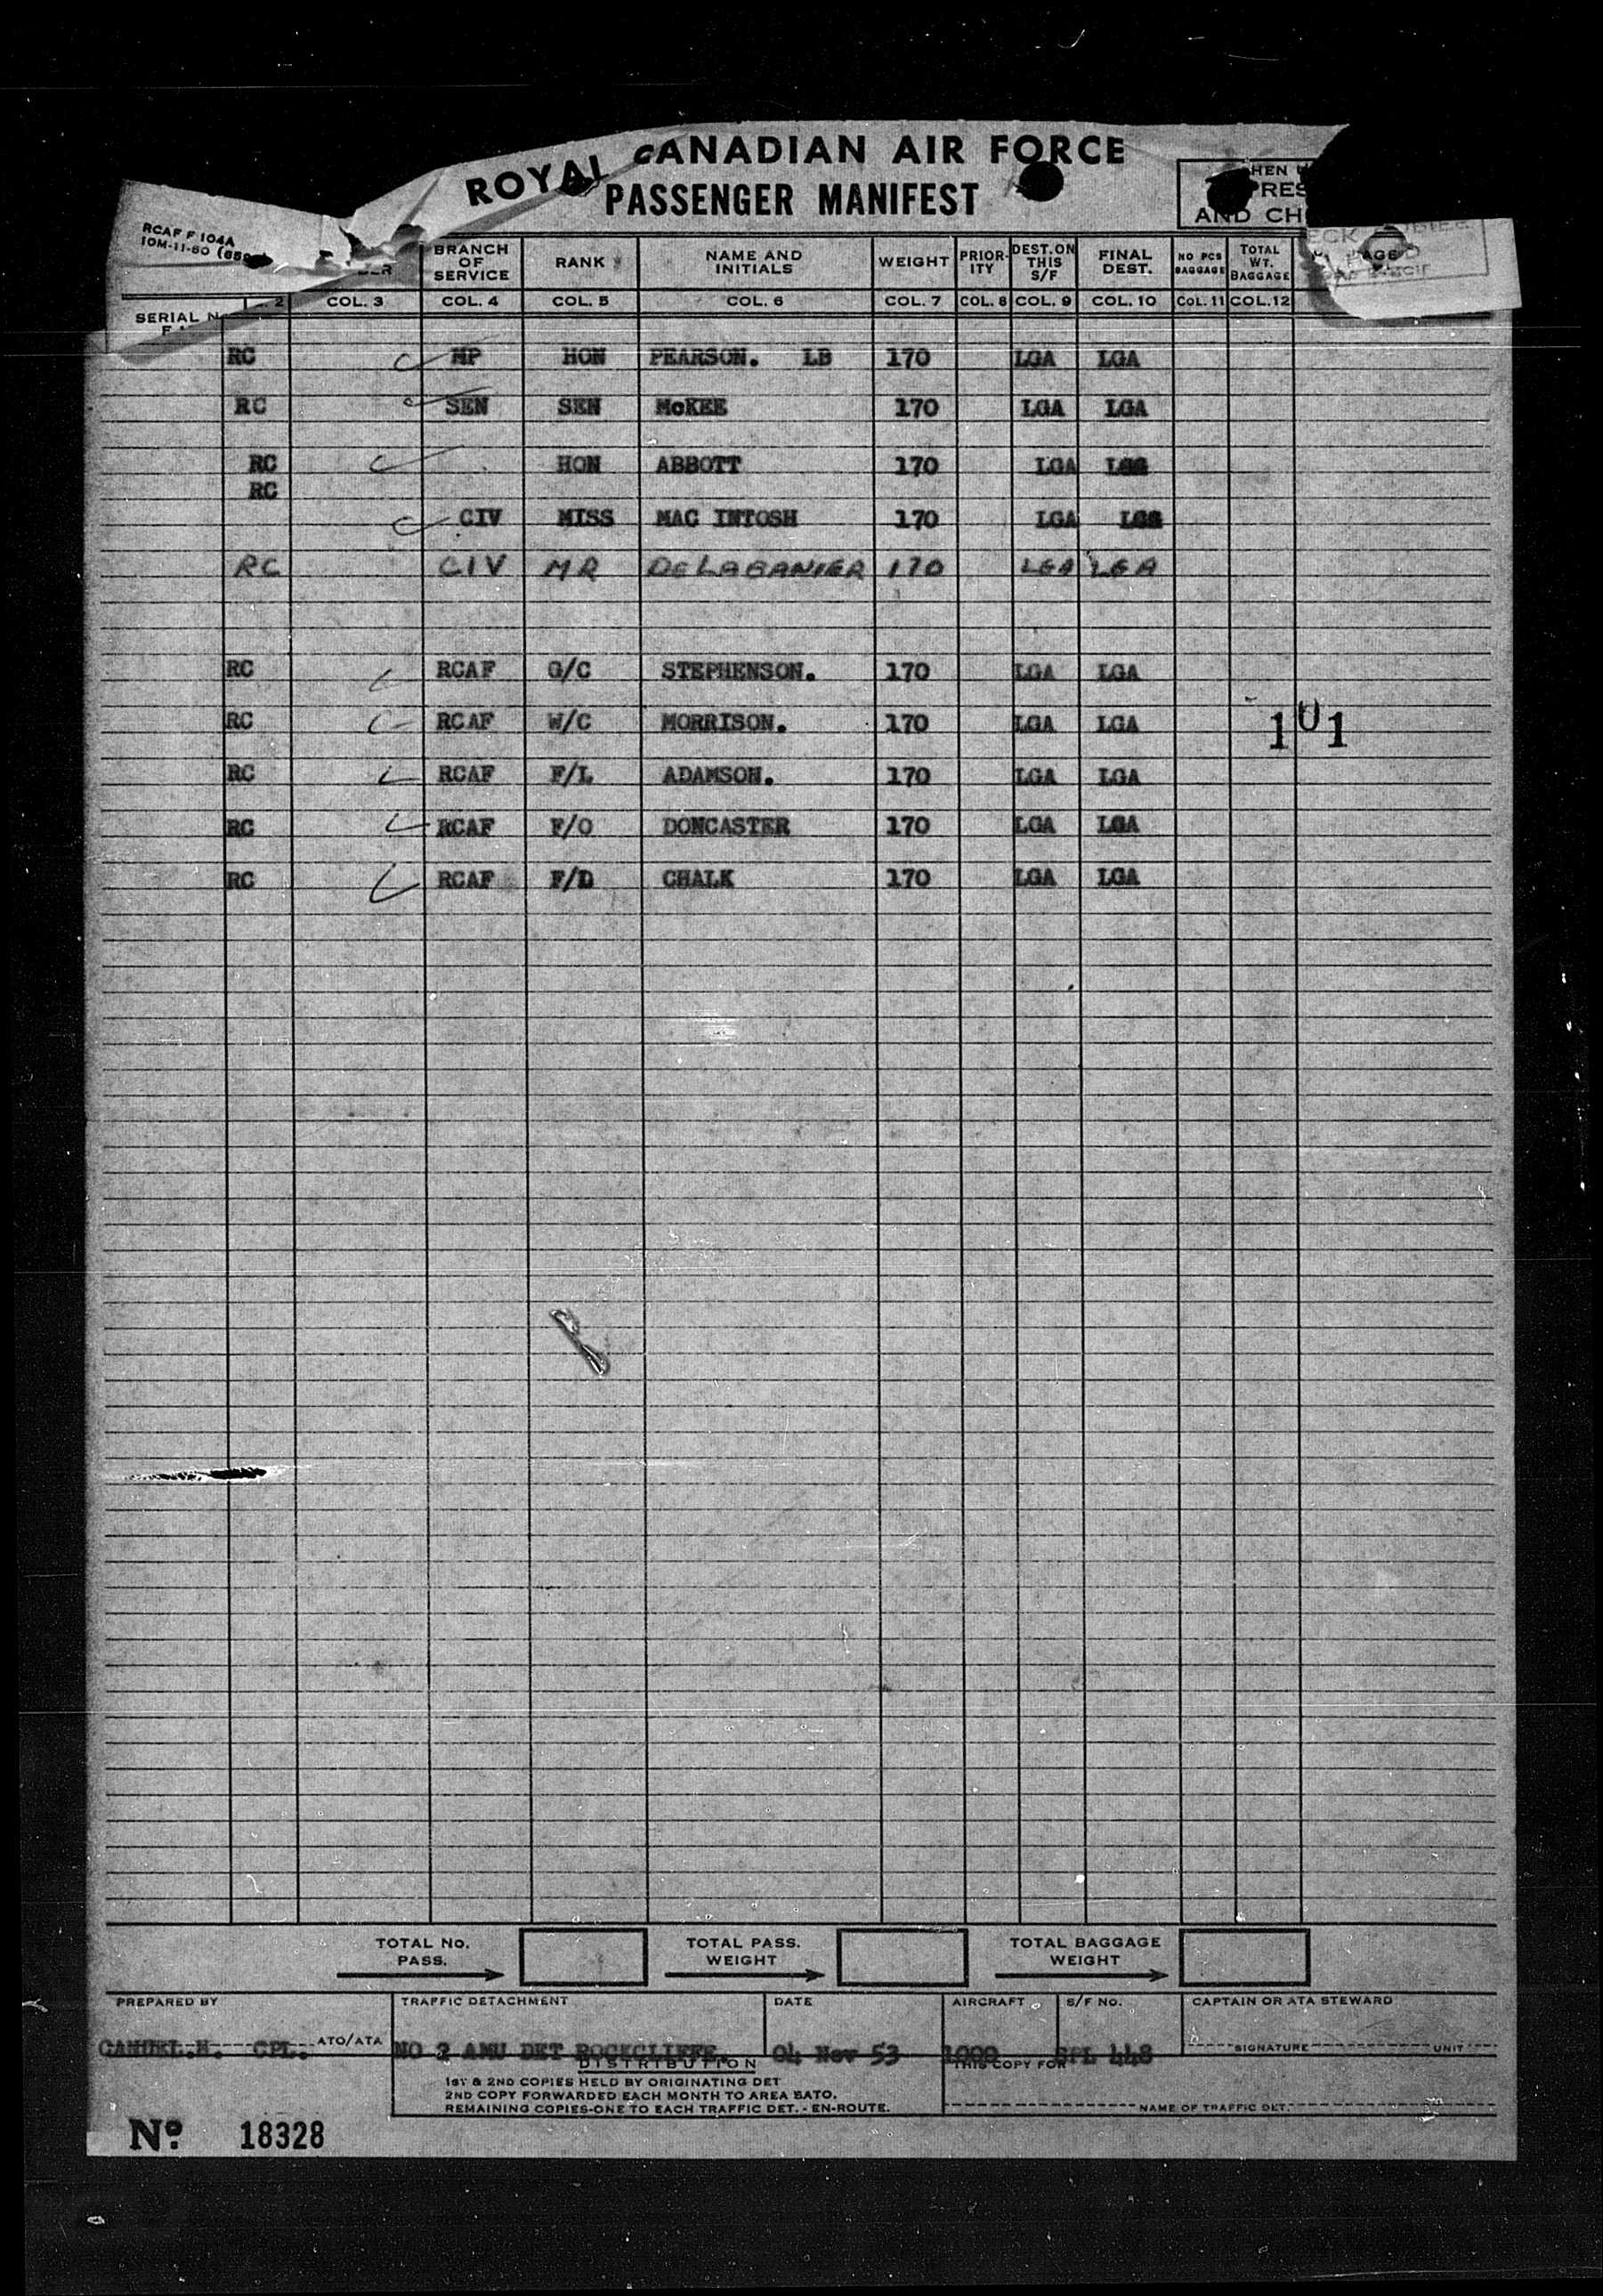 ROYAL CANADIAN AIR FORCE
PASSENGER MANIFEST
RCAF F 104A
BRANCH OF SERVICE RANK NAME AND INITIALS WEIGHT PRIORITY DEST. ON THIS S/F FINAL DEST. NO PCS BAGGAGE TOTAL WT. BAGGAGE
COL. 3 COL. 4 COL. 5 COL. 6 COL. 7 COL. 8 COL. 9 COL. 10 COL. 11 COL. 12
SERIAL
RC MP HON PEARSON. LB 170 LGA LGA
RC SEN SEN McKEE 170 LGA LGA
RC HON ABBOTT 170 LGA LGA
RC
CIV MISS MAC INTOSH 170 LGA LGA
RC CIV MR DELABANIER 170 LGA LGA
RC RCAF G/C STEPHENSON. 170 LGA LGA
RC RCAF W/C MORRISON. 170 LGA LGA
101
RC RCAF F/L ADAMSON. 170 LGA LGA
RC RCAF F/O DONCASTER 170 LGA LGA
RC RCAF F/D CHALK 170 LGA LGA
TOTAL NO. PASS. TOTAL PASS. WEIGHT TOTAL BAGGAGE WEIGHT
PREPARED BY TRAFFIC DETACHMENT DATE AIRCRAFT S/F NO. CAPTAIN OR ATA STEWARD
CPL. ATO/ATA NO 2 AMU DET ROCKCLIFFE 04 Nov 53 1000 SPL 448 SIGNATURE UNIT
DISTRIBUTION THIS COPY FOR
1ST & 2ND COPIES HELD BY ORIGINATING DET
2ND COPY FORWARDED EACH MONTH TO AREA SATO.
REMAINING COPIES-ONE TO EACH TRAFFIC DET. - EN-ROUTE. NAME OF TRAFFIC DET.
No. 18328